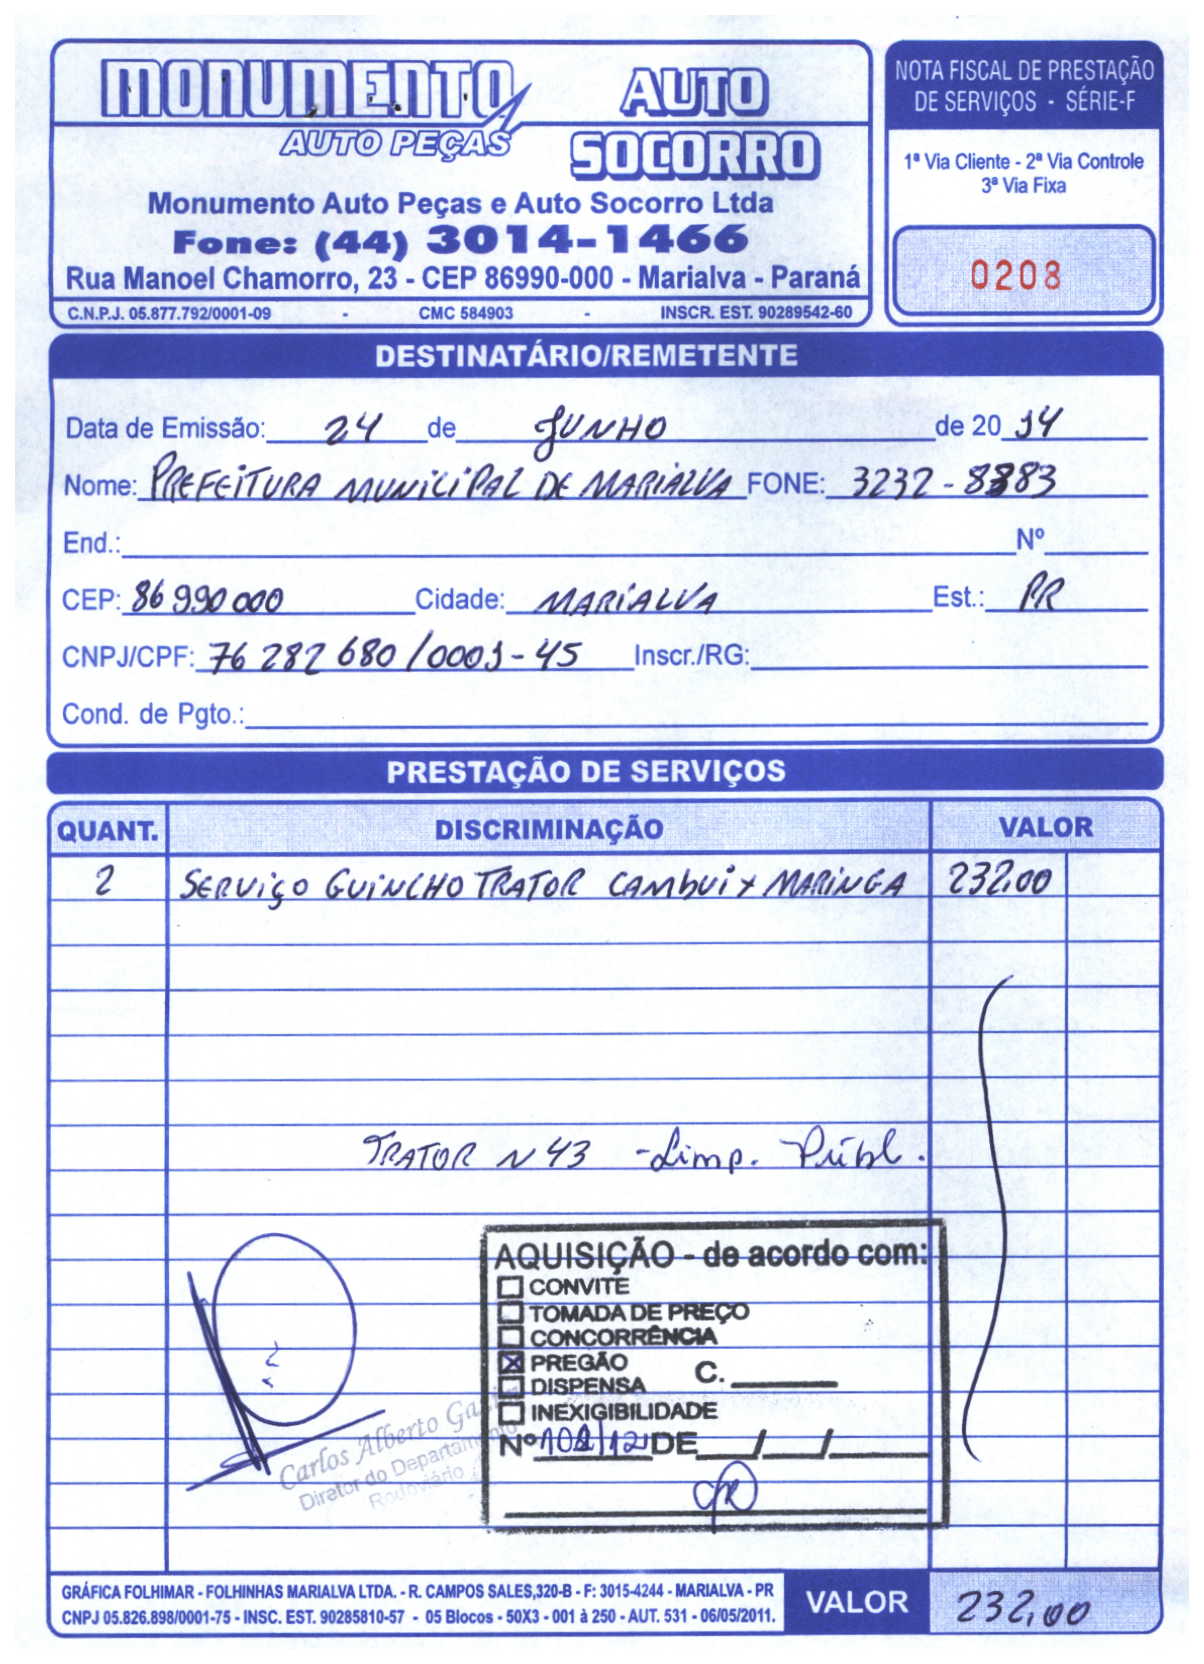 MONUMENTO
AUTO PEÇAS
AUTO
SOCORRO
Monumento Auto Peças e Auto Socorro Ltda
Fone: (44) 3014-1466
Rua Manoel Chamorro, 23 - CEP 86990-000 - Marialva - Paraná
C.N.P.J. 05.877.792/0001-09 - CMC 584903 - INSCR. EST. 90289542-60
NOTA FISCAL DE PRESTAÇÃO
DE SERVIÇOS - SÉRIE-F
1ª Via Cliente - 2ª Via Controle
3ª Via Fixa
0208
DESTINATÁRIO/REMETENTE
Data de Emissão: 24 de JUNHO de 2014
Nome: PREFEITURA MUNICIPAL DE MARIALVA FONE: 3232-8383
End.: Nº
CEP: 86990000 Cidade: MARIALVA Est.: PR
CNPJ/CPF: 76 282 680/0001-45 Inscr./RG:
Cond. de Pgto.:
PRESTAÇÃO DE SERVIÇOS
QUANT. DISCRIMINAÇÃO VALOR
2 SERVIÇO GUINCHO TRATOR CAMBUI x MARINGA 232,00
TRATOR N 43 - Limp. Públ.
AQUISIÇÃO - de acordo com:
CONVITE
TOMADA DE PREÇO
CONCORRÊNCIA
PREGÃO C.
DISPENSA
INEXIGIBILIDADE
Nº /12 DE / /
Carlos Alberto
Diretor do Departamento
Rodoviário
GRÁFICA FOLHIMAR - FOLHINHAS MARIALVA LTDA. - R. CAMPOS SALES,320-B - F: 3015-4244 - MARIALVA - PR
CNPJ 05.826.898/0001-75 - INSC. EST. 90285810-57 - 05 Blocos - 50X3 - 001 à 250 - AUT. 531 - 06/05/2011.
VALOR 232,00